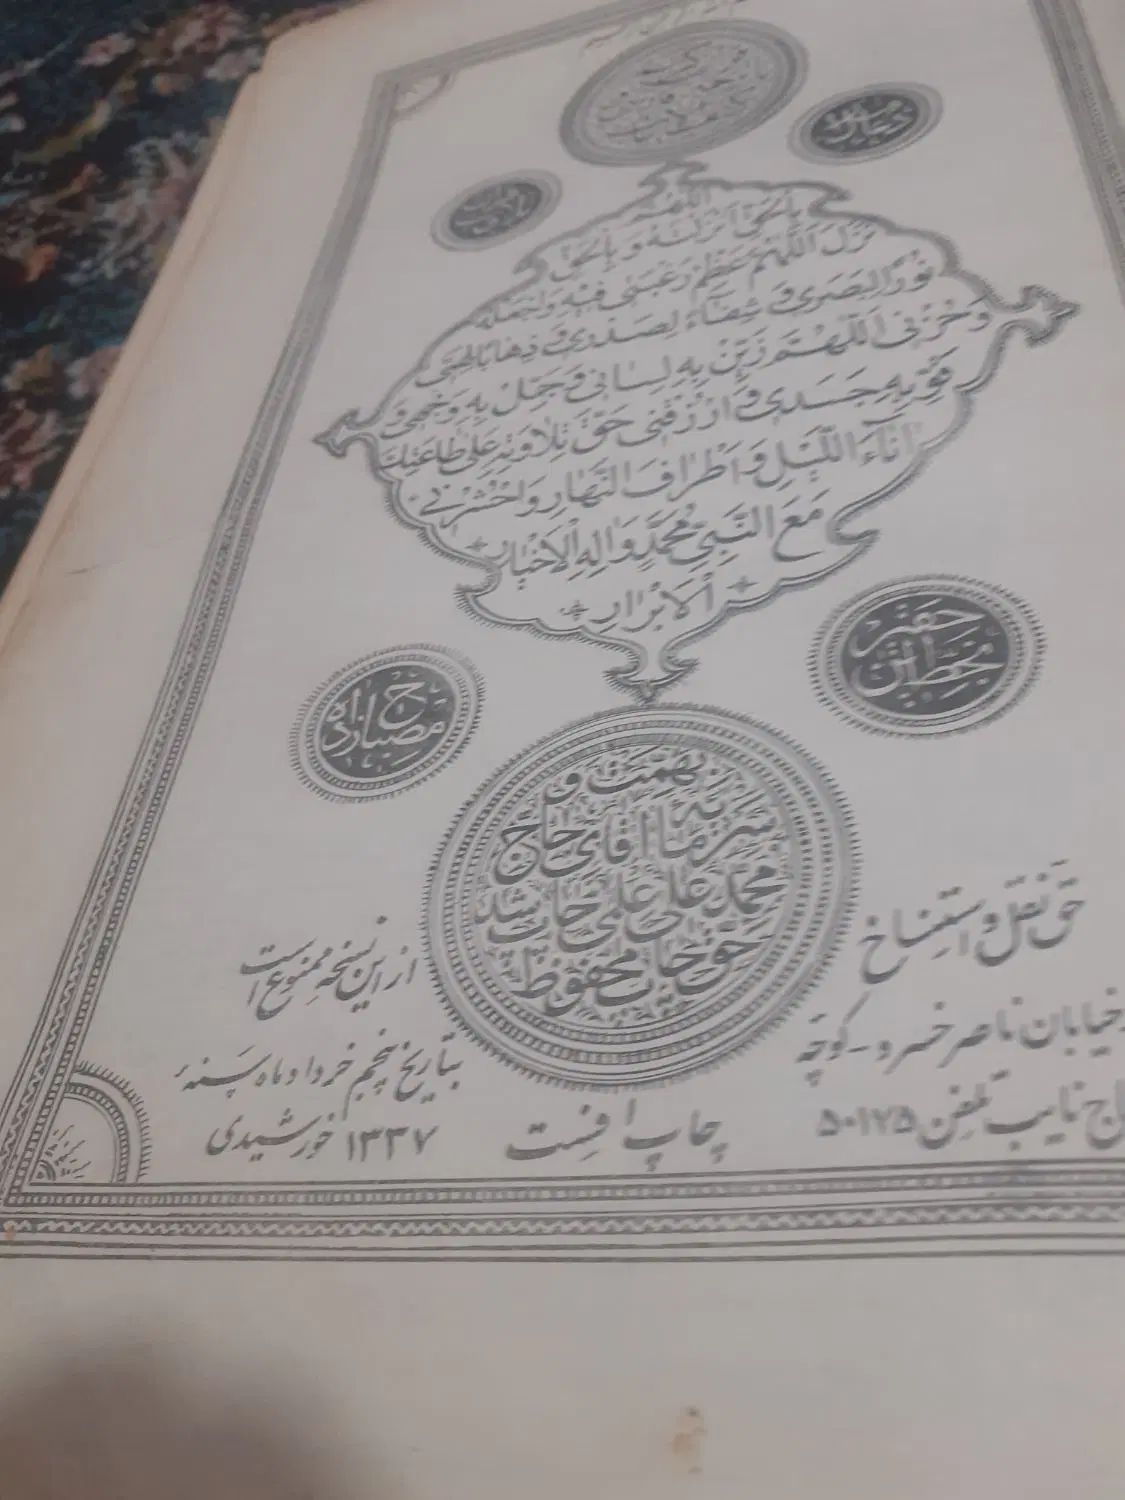 اللهم
بالحق انزلته و بالحق
نزل اللهم عظم رغبتی فیه واجعله
نورا لبصری و شفاء لصدری و ذهابا لهمی
و حزنی اللهم زین به لسانی و جمل به وجهی و
قو به جسدی و ارزقنی حق تلاوته علی طاعتک
اناء اللیل و اطراف النهار واحشرنی
مع النبی محمد و اله الاخیار
الابرار
حقیر
مصباح زاده
بهمت و
سرمایه آقای حاج
محمد علی علمی چاپ شد
حق چاپ محفوظ
حق نقل و استنساخ
از این نسخه ممنوع است
خیابان ناصر خسرو - کوچه
حاج نایب تلفن ۵۰۱۷۵
بتاریخ پنجم خرداد ماه بسنهٔ
۱۳۳۷ خورشیدی
چاپ افست